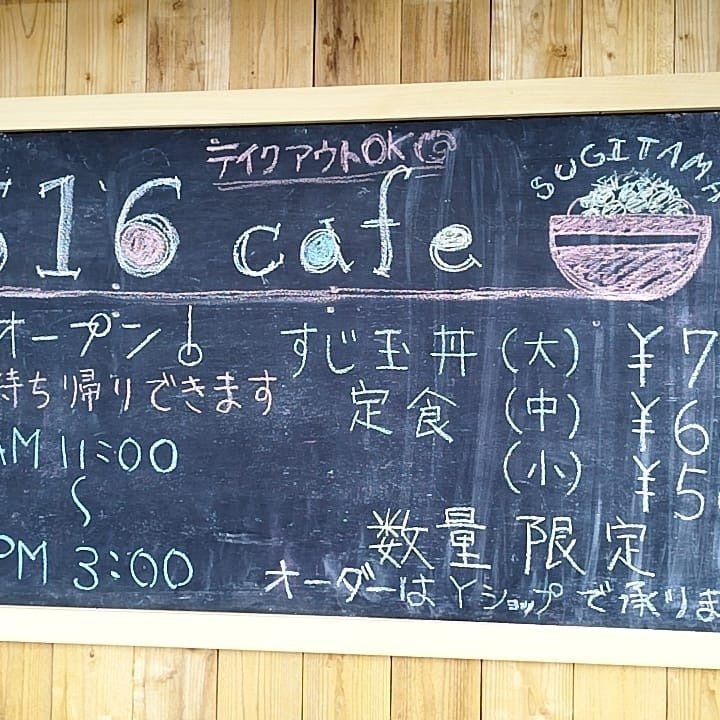 テイクアウトOK
516 cafe
SUGITAMA
オープン!
すじ玉丼 (大) ¥7
待ち帰りできます
定食 (中) ¥6
AM 11:00
(小) ¥5
〜
数量限定
PM 3:00
オーダーは Yショップで承りま